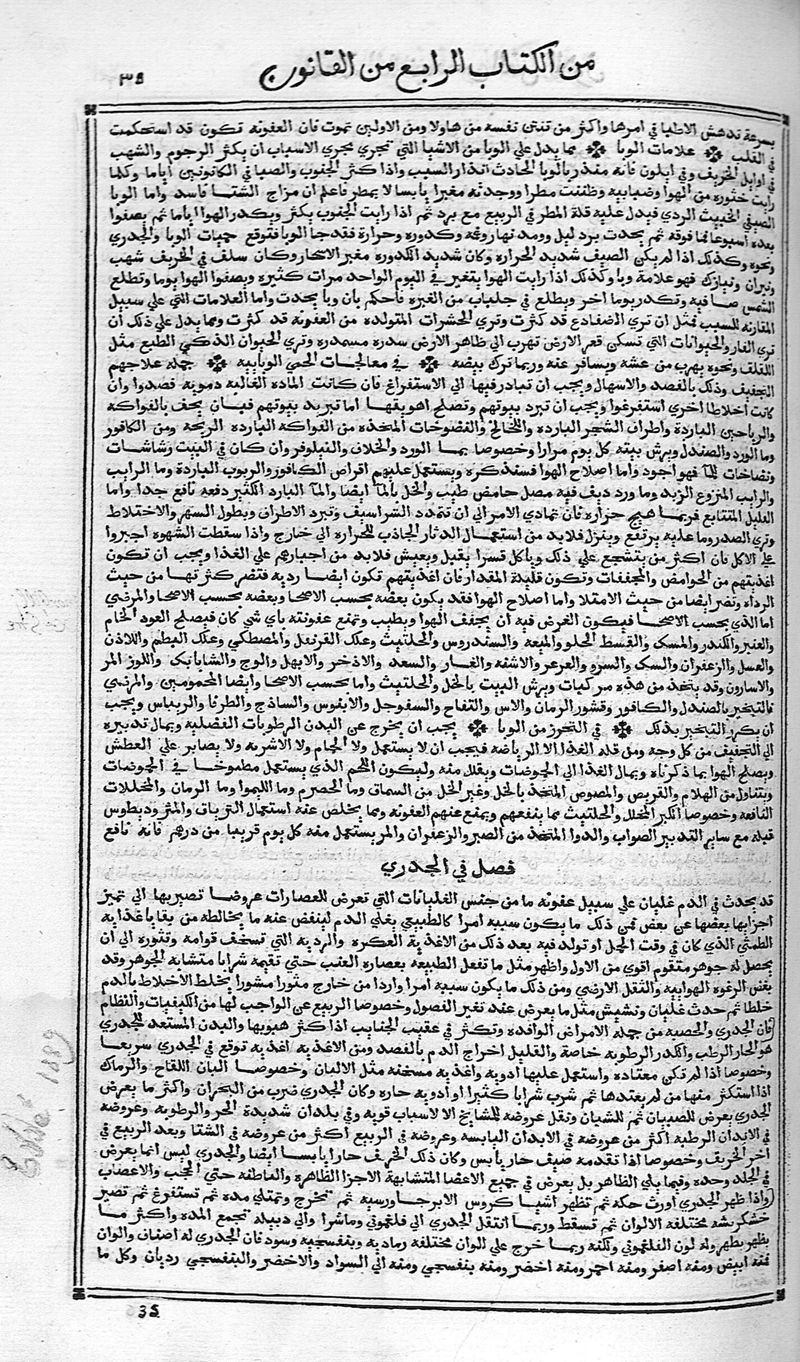 من الكتاب الرابع من القانون ٣٥
بسرعة تدهش الاطبا في امرها واكثر من تنتن نفسه من هاولا ومن الاولين تموت فان العفونه تكون قد استحكمت
في القلب علامات الوبا مما يدل علي الوبا من الاشيا التي تجري مجري الاسباب ان يكثر الرجوم والشهب
في اوايل الخريف وفي ايلون فانه منذر بالوبا الحادث انذار السبب واذا كثر الجنوب والصبا في الكانونين اياما وكلما
رايت خثوره من الهوا وضبابيه وظننت مطرا ووجدته مغبرا يابسا لا يمطر فاعلم ان مزاج الشتا فاسد واما الوبا
الصيفي الخبيث الردي فيدل عليه قلة المطر في الربيع مع برد ثم اذا رايت الجنوب يكثر ويكدر الهوا اياما ثم يصفوا
بعده اسبوعا فما فوقه ثم يحدث برد ليل وومد نهار وغمه وكدوره وحرارة فقد جا الوبا فتوقع حميات الوبا والجدري
ونحوه وكذلك اذا لم يكن الصيف شديد الحراره وكان شديد الكدوره مغبر الاشجار وكان سلف في الخريف شهب
ونيران ونيازك فهو علامة وبا وكذلك اذا رايت الهوا يتغير في اليوم الواحد مرات كثيره ويصفوا الهوا يوما وتطلع
الشمس صافيه وتكدر يوما اخر ويطلع في جلباب من الغبره فاحكم بان وبا يحدث واما العلامات التي علي سبيل
المقارنه للسبب فمثل ان تري الضفادع قد كثرت وتري الحشرات المتولده من العفونه قد كثرت ومما يدل علي ذلك ان
تري الفار والحيوانات التي تسكن قعر الارض تهرب الي ظاهر الارض سدره مسمدره وتري الحيوان الذكي الطبع مثل
اللقلق ونحوه يهرب من عشه ويسافر عنه وربما ترك بيضه في معالجات الحمي الوبايية جمله علاجهم
التجفيف وذلك بالفصد والاسهال ويجب ان تبادر فيها الي الاستفراغ فان كانت الماده الغالبه دمويه فصدوا وان
كانت اخلاطا اخري استفرغوا ويجب ان تبرد بيوتهم وتصلح اهويتها اما تبريد بيوتهم فبان يحف بالفواكه
والرياحين الباردة واطراف الشجر البارده واللخالخ والنضوحات المتخذه من الفواكه البارده الريحه ومن الكافور
وما الورد والصندل ويرش بيته كل يوم مرارا وخصوصا بما الورد والخلاف والنيلوفر وان كان في البيت رشاشات
ونضاخات للما فهو اجود واما اصلاح الهوا فسنذكره ويستعمل عليهم اقراص الكافور والربوب الباردة وما الرايب
والرايب المنزوع الزبد وما ورد ديف فيه مصل حامض طيب والخل بالما ايضا والما البارد الكثير دفعه نافع جدا واما
القليل المتتابع فربما هيج حرارة فان تمادي الامر الي ان تتمدد الشراسيف وتبرد الاطراف ويطول السهر والاختلاط
وتري الصدر وما عليه يرتفع وينزل فلابد من استعمال الدثار الجاذب للحراره الي خارج واذا سقطت الشهوه اجبروا
علي الاكل فان اكثر من يتشجع علي ذلك وياكل قسرا يقبل ويعيش فلابد من اجبارهم علي الغذا ويجب ان تكون
اغذيتهم من الحوامض والمجففات وتكون قليلة المقدار فان اغذيتهم تكون ايضا رديه فتضر كثرتها من حيث
الرداه وتضر ايضا من حيث الامتلا واما اصلاح الهوا فقد يكون بعضه بحسب الاصحا وبعضه بحسب الاصحا والمرضي
اما الذي بحسب الاصحا فيكون الغرض فيه ان يجفف الهوا ويطيب وتمنع عفونته باي شي كان فيصلح العود الخام
والعنبر والكندر والمسك والقسط الحلو والميعه والسندروس والحلتيث وعلك القرنفل والمصطكي وعلك البطم واللاذن
والعسل والزعفران والسك والسرو والعرعر والاشنه والغار والسعد والاذخر والابهل والوج والشابابك واللوز المر
والاسارون وقد يتخذ من هذه مركبات ويرش البيت بالخل والحلتيث واما بحسب الاصحا وايضا المحمومين والمرضي
فالتبخير بالصندل والكافور وقشور الرمان والاس والتفاح والسفرجل والابنوس والساذج والطرفا والريباس ويجب
ان يكرر التبخير بذلك في التحرز من الوبا يجب ان يخرج عن البدن الرطوبات الفضليه ويمال تدبيره
الي التجفيف من كل وجه ومن قله الغذا الا الرياضه فيجب ان لا يستعمل ولا الحمام ولا الاشربه ولا يصابر علي العطش
ويصلح الهوا بما ذكرناه ويمال الغذا الي الحموضات ويقلل منه وليكون اللحم الذي يستعمل مطبوخا في الحموضات
ويتناول من الهلام والقريص والمصوص المتخذ بالخل وغير الخل من السماق وما الحصرم وما الليموا وما الرمان والمخللات
النافعه وخصوصا الكبر المخلل والحلتيث مما ينفعهم ويمنع عنهم العفونه ومما يخلص عنه استعمال الترياق والمثروديطوس
قبله مع ساير التدبير الصواب والدوا المتخذ من الصبر والزعفران والمر يستعمل منه كل يوم قريبا من درهم فانه نافع
فصل في الجدري
قد يحدث في الدم غليان علي سبيل عفونه ما من جنس الغليانات التي تعرض للعصارات عروضا تصير بها الي تميز
اجزايها بعضها عن بعض فمن ذلك ما يكون سببه امرا كالطبيعي يغلي الدم لينفض عنه ما يخالطه من بقايا غذايه
الطمثي الذي كان في وقت الحمل او تولد فيه بعد ذلك من الاغذية العكره والرديه التي تسخف قوامه وتثوره الي ان
يحصل له جوهر متقوم اقوي من الاول واظهر مثل ما تفعل الطبيعه بعصاره العنب حتي تقيمه شرابا متشابه الجوهر وقد
نفض الرغوه الهوايية والثقل الارضي ومن ذلك ما يكون سببه امرا واردا من خارج مثورا مشورا يخلط الاخلاط بالدم
خلطا ثم حدث غليان ونشيش مثل ما يعرض عند تغير الفصول وخصوصا الربيع عن الواجب لها من الكيفيات والنظام
فان الجدري والحصبه من جمله الامراض الوافده وتكثر في عقيب الجنايب اذا كثر هبوبها والبدن المستعد للجدري
هو الحار الرطب والكدر الرطوبه خاصة والقليل اخراج الدم بالفصد ومن الاغذيه اغذيه توقع في الجدري سريعا
وخصوصا اذا لم تكن معتاده واستعمل عليها ادويه واغذيه مسخنه مثل الالبان وخصوصا البان اللقاح والرماك
اذا استكثر منها من لم يعتدها ثم شرب شرابا كثيرا او ادويه حاره وكان الجدري ضرب من البحران واكثر ما يعرض
الجدري يعرض للصبيان ثم للشبان ونقل عروضه للمشايخ الا لاسباب قويه وفي بلدان شديدة الحر والرطوبه وعروضه
في الابدان الرطبه اكثر من عروضه في الابدان اليابسه وعروضه في الربيع اكثر من عروضه في الشتا وبعد الربيع في
اخر الخريف وخصوصا اذا تقدمه صيف حار يابس وكان ذلك الخريف حارا يابسا ايضا والجدري ليس انما يعرض
في الجلد وحده وفيما يلي الظاهر بل يعرض في جميع الاعضا المتشابهة الاجزا الظاهره والباطنه حتي الحجب والاعصاب
واذا ظهر الجدري اورث حكه ثم تظهر اشيا كروس الابر جاورسيه ثم تخرج وتمتلي مده ثم تستفرغ ثم تصير
خشكريشه مختلفه الالوان ثم تسقط وربما انتقل الجدري الي فلغموني وماشرا والي دبيله تجمع المده واكثر ما
يظهر يظهر وله لون الفلغموني ولكنه ربما خرج علي الوان مختلفه رماديه وبنفسجيه وسود فان الجدري له اصناف والوان
فمنه ابيض ومنه اصفر ومنه احمر ومنه اخضر ومنه بنفسجي ومنه الي السواد والاخضر والبنفسجي رديان وكل ما
35
1889